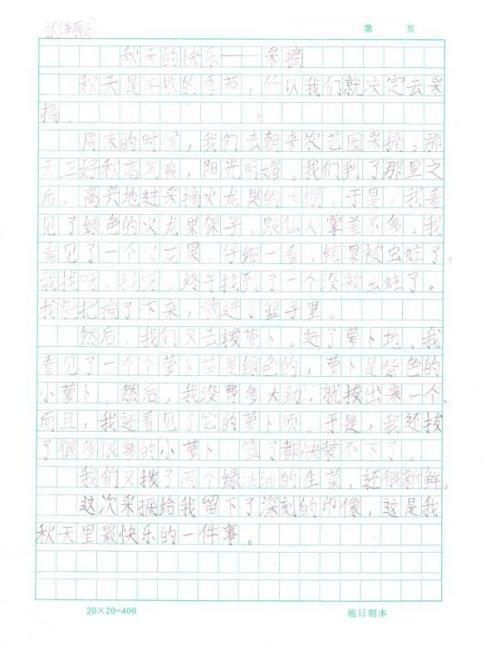 第 页
秋天的快乐——采摘
秋天是丰收的季节，所以我们就决定去采
摘。
周末的时候，我们去朝来农艺园采摘。那
天正好秋高气爽，阳光明媚。我们到了那里之
后，高兴地进采摘火龙果的大棚。于是，我看
见了绿色的火龙果架子，跟仙人掌差不多。我
看见了一个火龙果，仔细一看，结果被虫蛀了。
我找呀，找呀，终于找到了一个没被虫蛀了。
我把摘了下来，放进了篮子里。
然后，我们又去拔萝卜。到了萝卜地，我
看见了一个个萝卜苗是绿色的，萝卜是色的
小萝卜。然后，我没费多大劲，就拔出来一个
而且，我还看见了它的萝卜须。于是，我还拔
了很多很多的小萝卜，篮子都快装不下了。
我们又拔了两个绿油油的生菜，还很新鲜。
这次采摘给我留下了深刻的印像，这是我
秋天里最快乐的一件事。
20×20=400
旭日制本